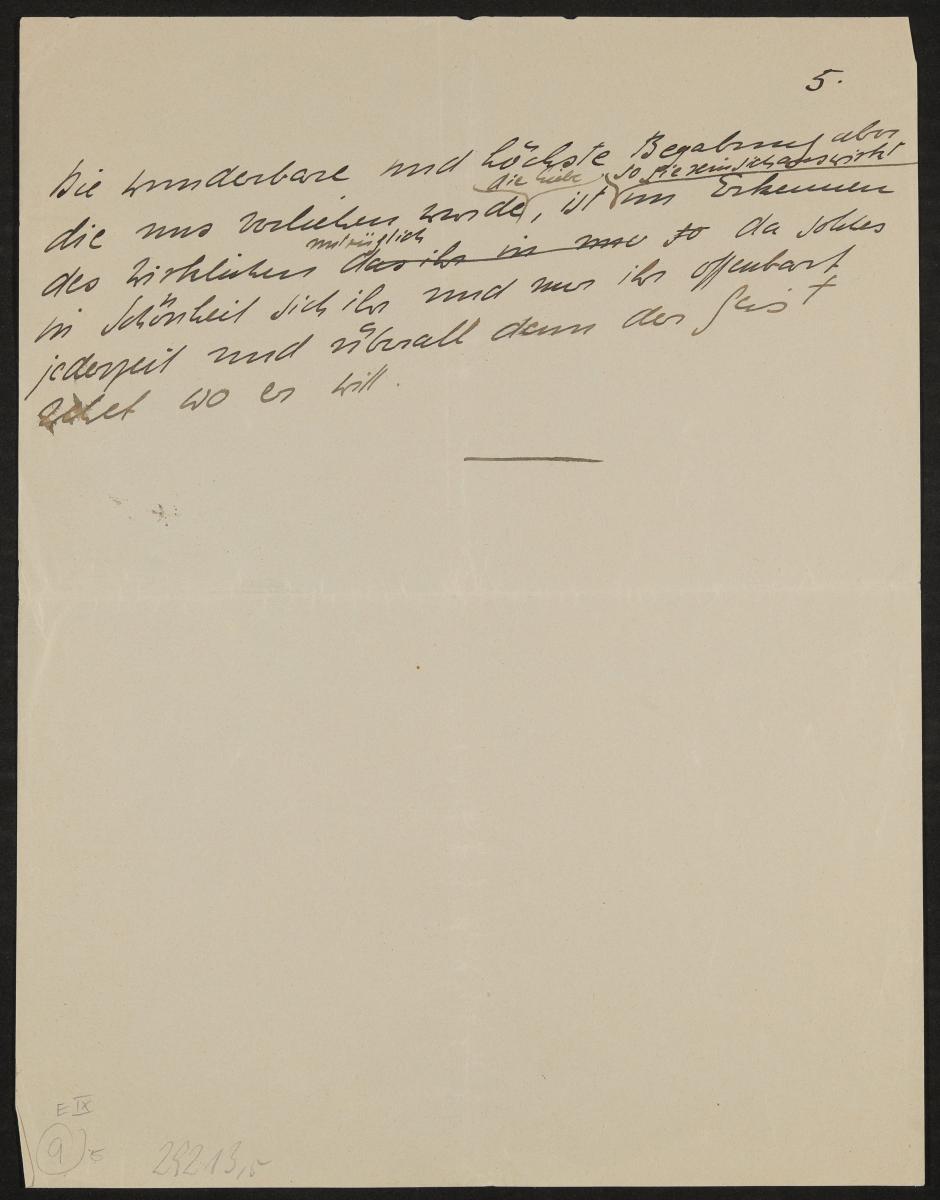 5.
Die wunderbare und höchste Begabung aber
die Liebe, so sie rein sich auswirkt
die uns verliehen wurde, ist im Erkennen
untrüglich
des Wirklichen das ihr in nur so da solches
in Schönheit sich ihr und nur ihr offenbart
jederzeit und überall denn der Geist
wehet wo er will.
E IX
9 5
29213,5